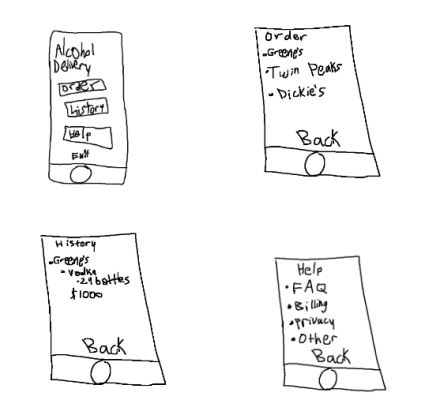 Alcohol
Delivery
Order
History
Help
Exit
Order
•Greene's
•Twin Peaks
• Dickie's
Back
History
•Greene's
•Vodka
•24 bottles
$1000
Back
Help
•FAQ
•Billing
•Privacy
•Other
Back